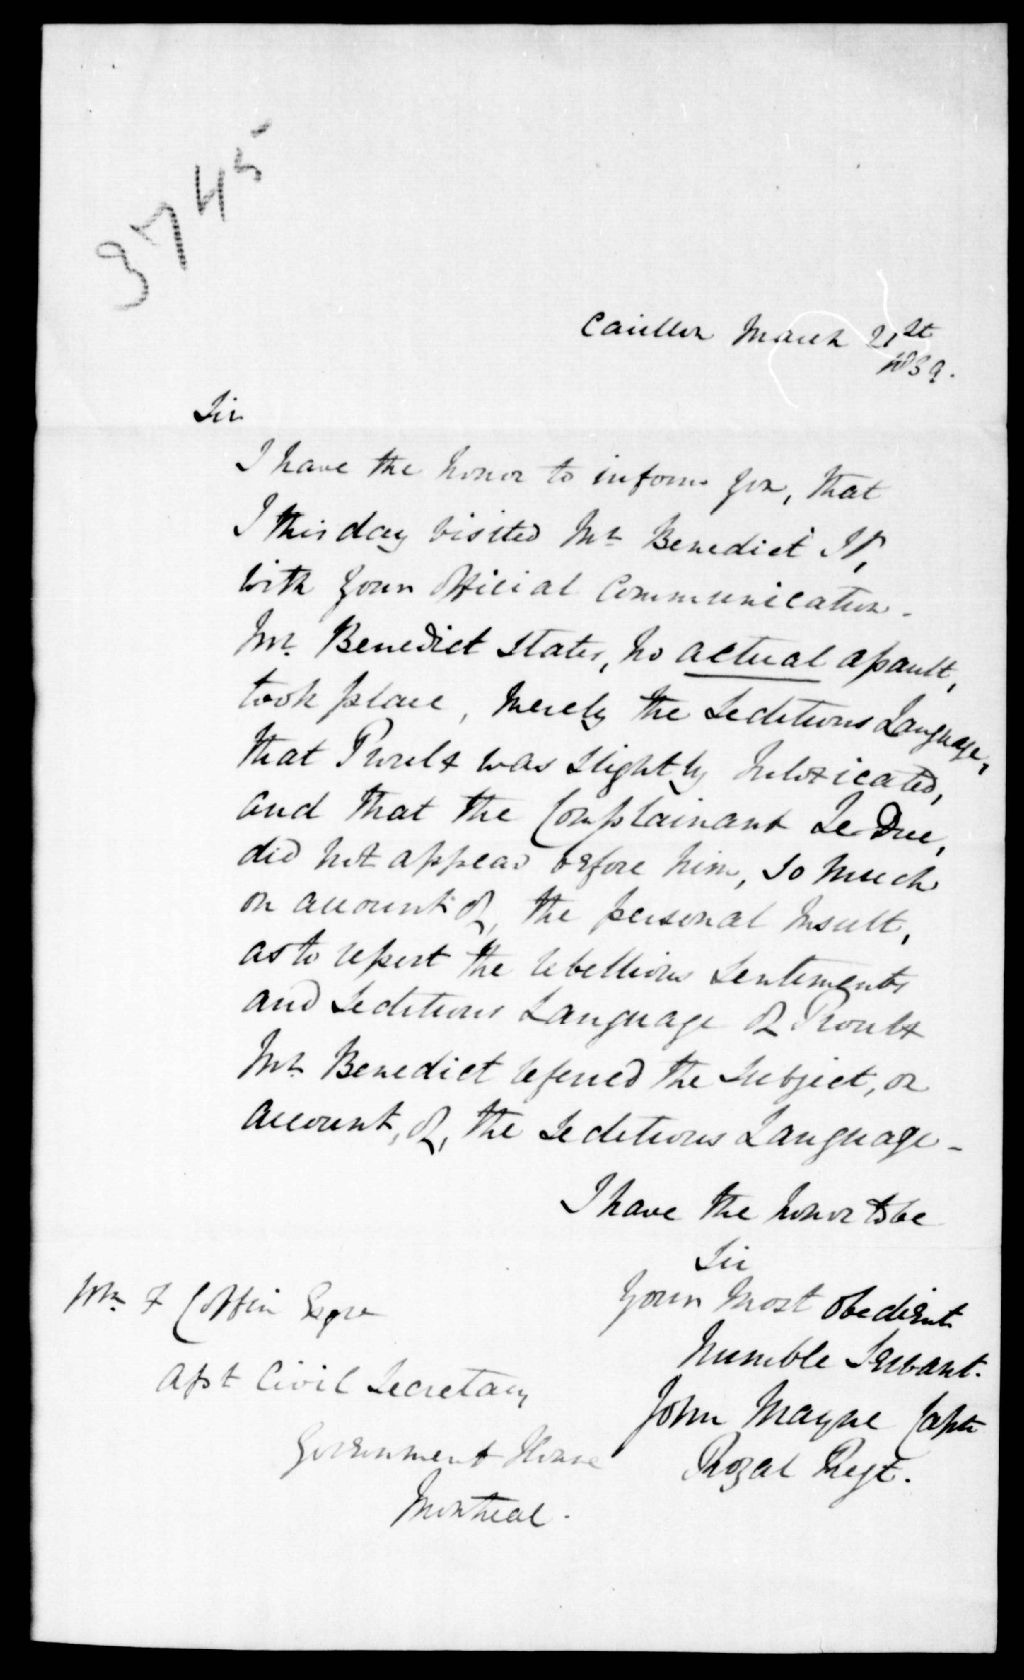 3745
Carillon March 21st
1839.
Sir
I have the honor to inform you, that
I this day visited Mr Benedict J P,
with your Official Communication -
Mr. Benedict states, no actual assault,
took place, merely the Seditious Language,
that Proulx was Slightly Intoxicated,
and that the Complainant Le Duc,
did not appear before him, so much
on account of, the personal Insult,
as to report the rebellious Sentiments
and Seditious Language of Proulx
Mr Benedict refered the Subject, on
account, of, the Seditious Language -
I have the honor to be
Sir
Your Most obedient
humble Servant.
John Mayne Captn
Royal Regt.
F Coffin Esqre
Asst Civil Secretary
Government House
Montreal.